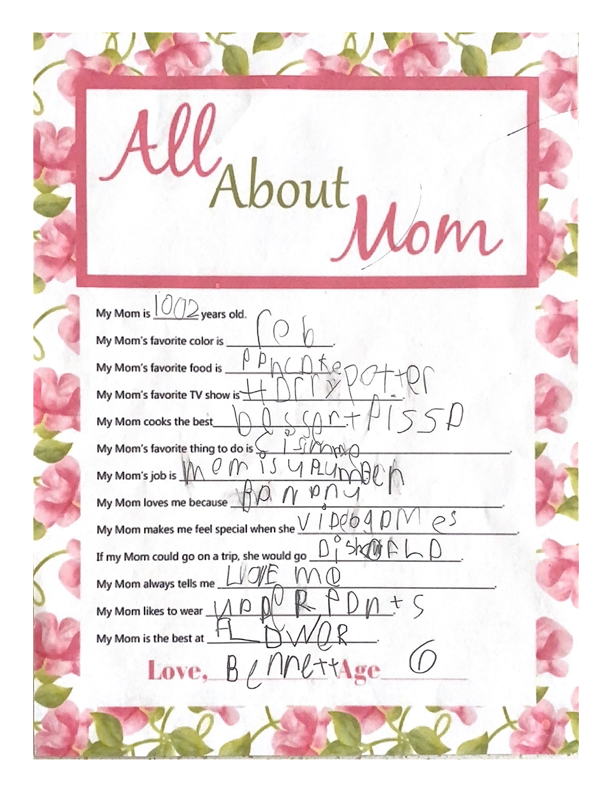 All
About
Mom
My Mom is 1002 years old.
My Mom's favorite color is reb.
My Mom's favorite food is PPncake.
My Mom's favorite TV show is Harry potter.
My Mom cooks the best bessert PISSA
My Mom's favorite thing to do is
My Mom's job is mom is
My Mom loves me because
My Mom makes me feel special when she videogames.
If my Mom could go on a trip, she would go
My Mom always tells me LIOVE me.
My Mom likes to wear undeRPants
My Mom is the best at
Love, Bennett Age 6